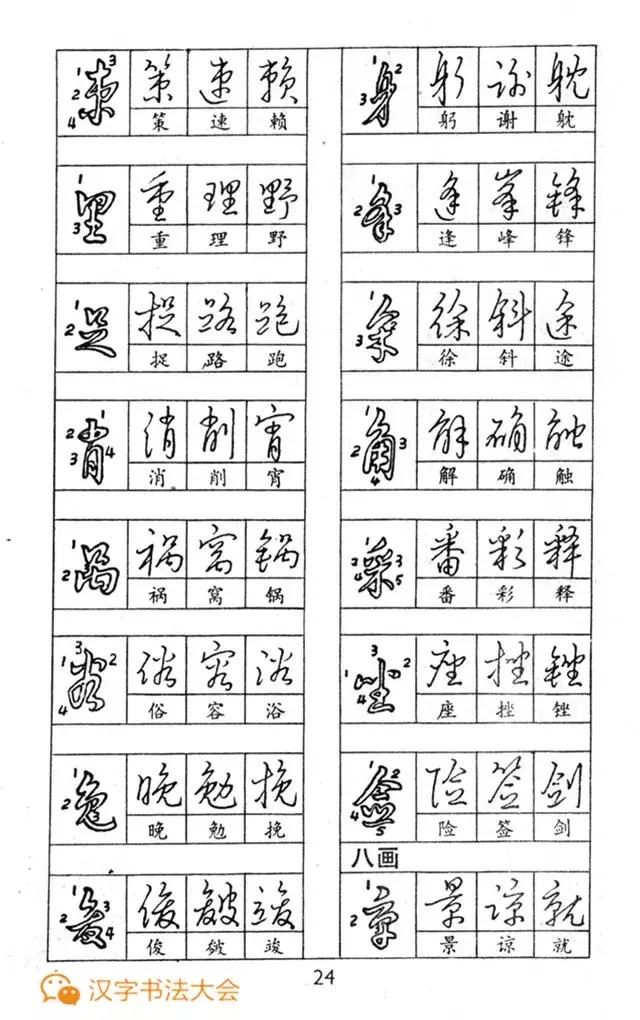 束 策 速 赖
策 速 赖
里 重 理 野
重 理 野
足 捉 路 跑
捉 路 跑
肖 消 削 宵
消 削 宵
呙 祸 窝 锅
祸 窝 锅
谷 俗 容 浴
俗 容 浴
免 晚 勉 挽
晚 勉 挽
夋 俊 皴 竣
俊 皴 竣
身 躬 谢 躭
躬 谢 躭
夆 逢 峰 锋
逢 峰 锋
余 徐 斜 途
徐 斜 途
角 解 确 触
解 确 触
采 番 彩 释
番 彩 释
坐 座 挫 锉
座 挫 锉
佥 险 签 剑
险 签 剑
八画
京 景 谅 就
景 谅 就
24
汉字书法大会